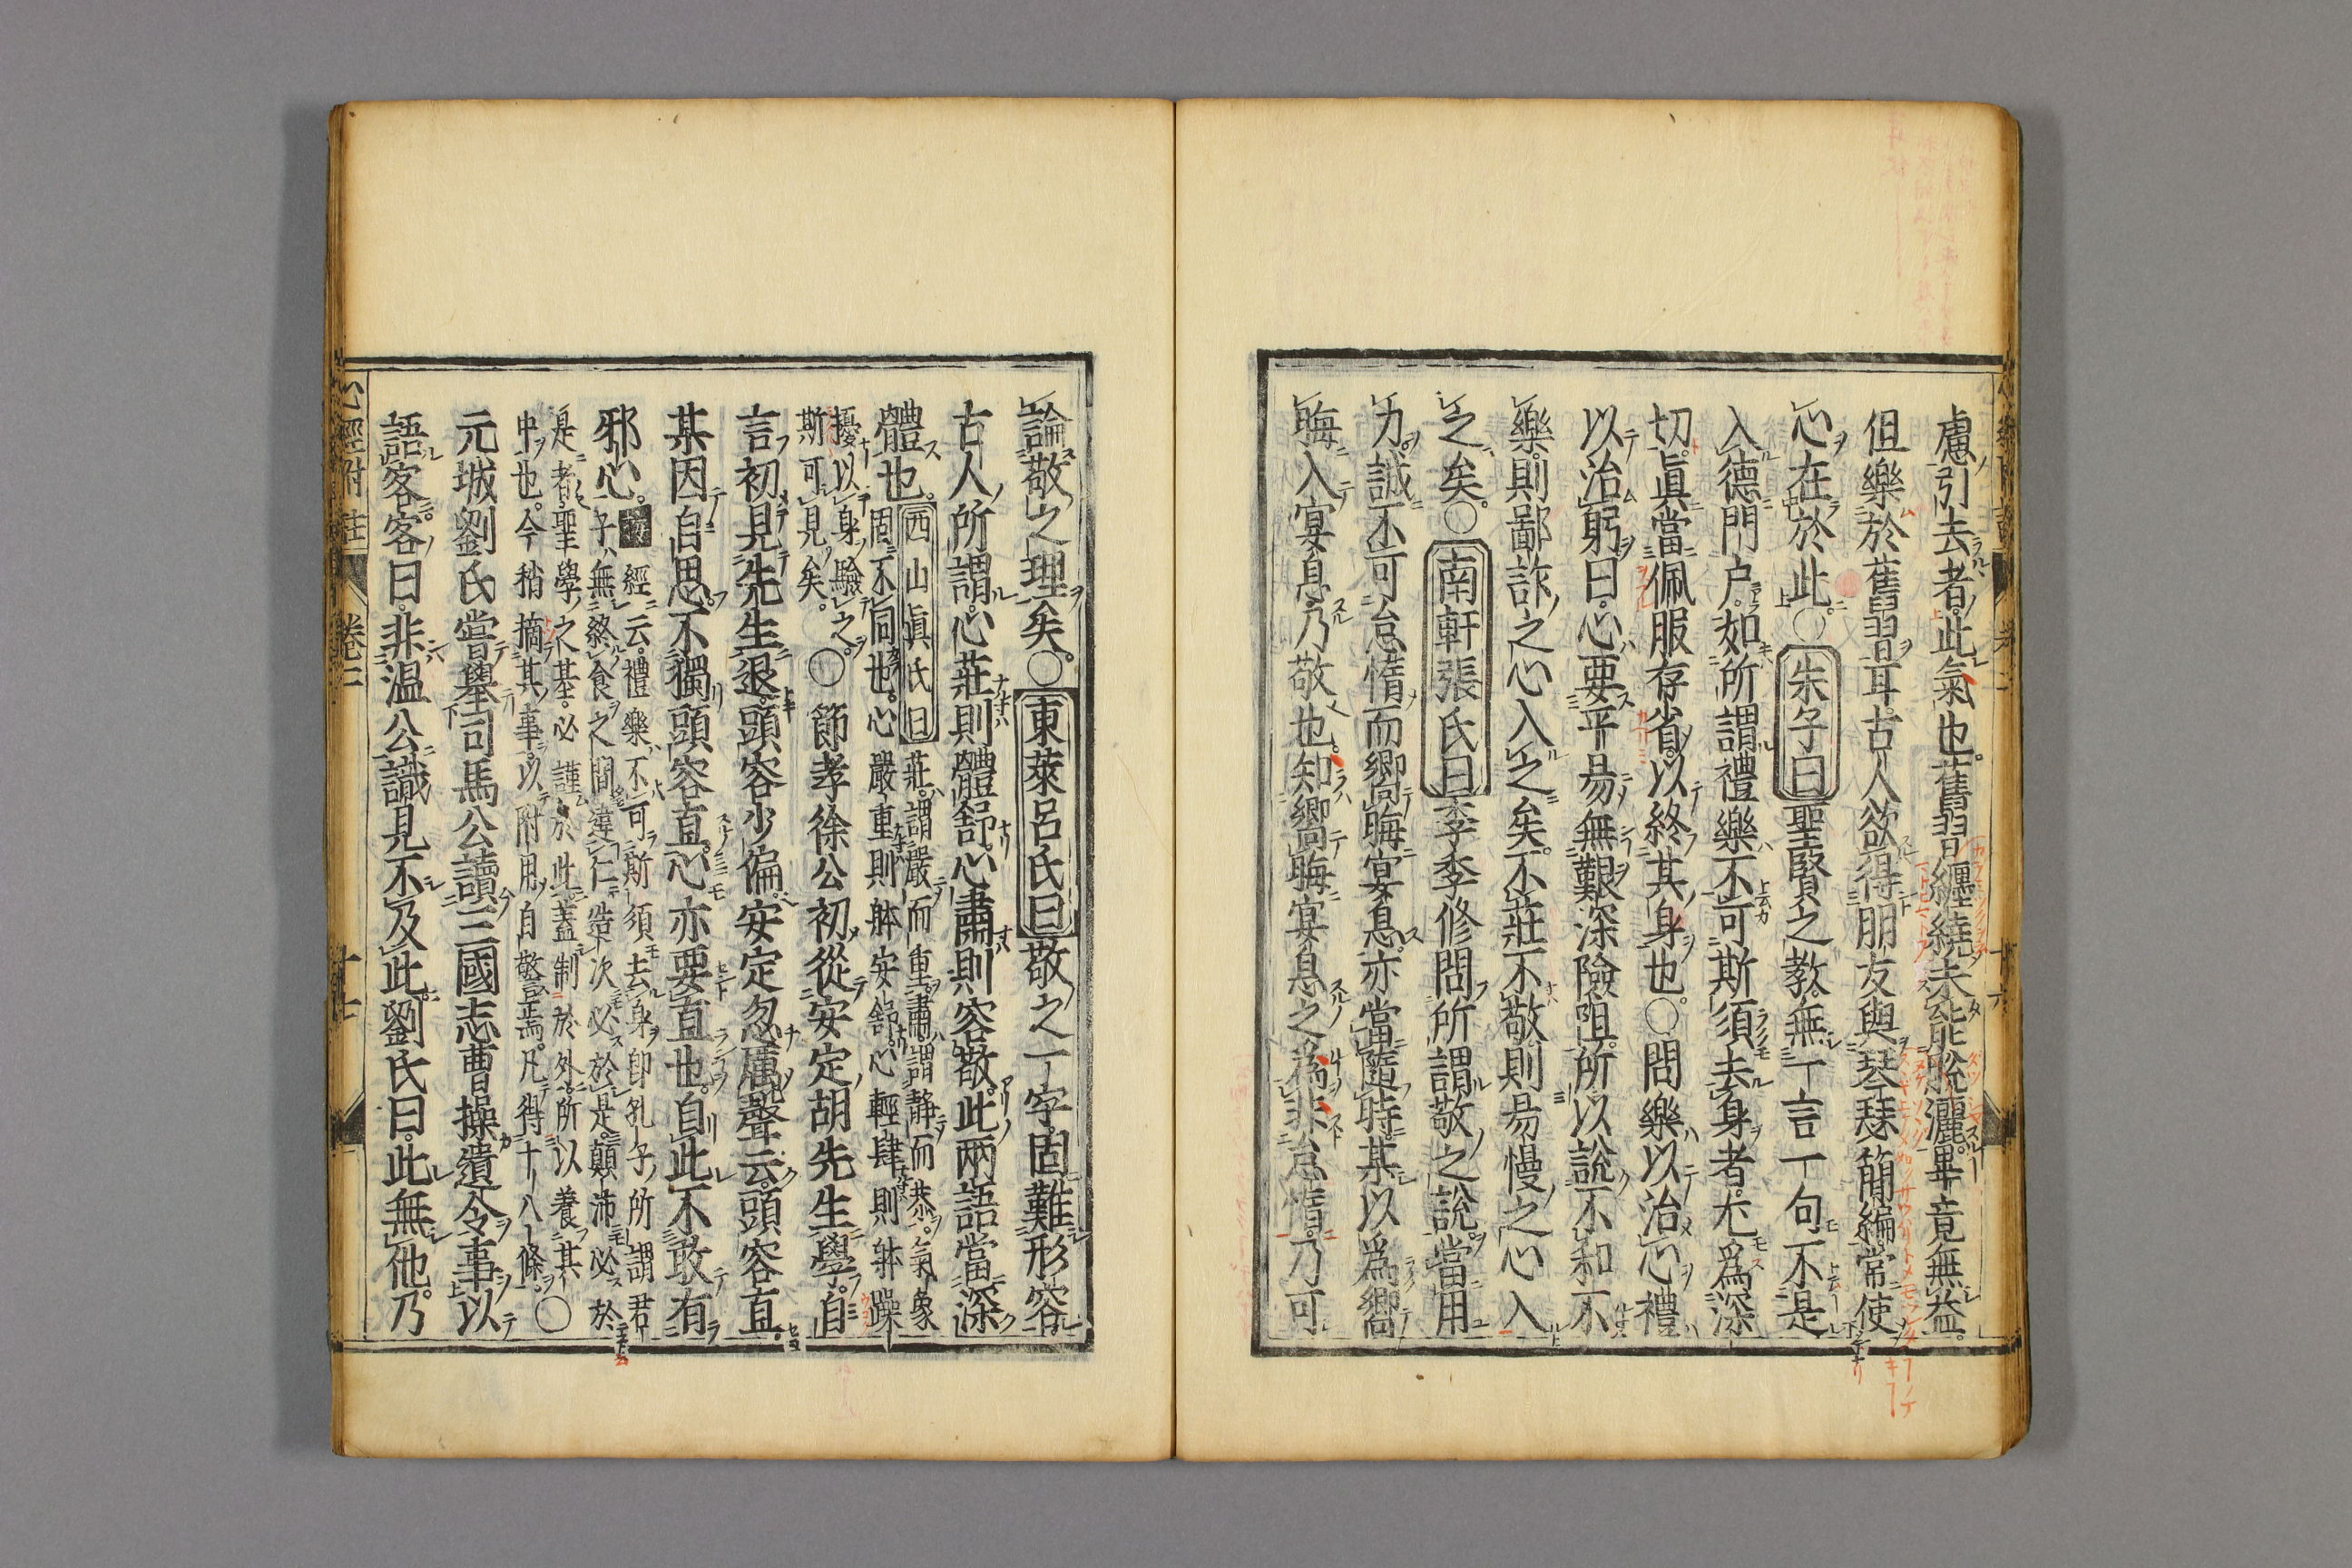 慮引去者此氣也舊習纏繞未能脫灑畢竟無益
但樂於舊習耳古人欲得朋友與琴瑟簡編常使
心在於此〇朱子曰聖賢之教無一言一句不是
入德門戶如所謂禮樂不可斯須去身者尤爲深
切眞當佩服存省以終其身也〇問樂以治心禮
以治躬曰心要平易無艱深險阻所以說不和不
樂則鄙詐之心入之矣不莊不敬則易慢之心入
之矣〇南軒張氏曰李季修問所謂敬之說當用
力誠不可怠惰而嚮晦宴息亦當隨時某以爲嚮
晦入宴息乃敬也知嚮晦宴息之爲非怠惰乃可
論敬之理矣〇東萊呂氏曰敬之一字固難形容
古人所謂心莊則體舒心肅則容敬此兩語當深
體也西山眞氏曰莊謂嚴而重肅謂静而恭氣象
固不同也心嚴重則躰安舒心輕肆則躰躁
擾以身驗之
斯可見矣〇節孝徐公初從安定胡先生學自
言初見先生退頭容少偏安定忽厲聲云頭容直
某因自思不獨頭容直心亦要直也自此不敢有
邪心
經云禮樂不可斯須去身卽孔子所謂君
子無終食之間違仁造次必於是顚沛必於
是者聖學之基必謹於此蓋制於外所以養其
中也今稍摘其事以附用自警焉凡得十八條〇
元城劉氏嘗擧司馬公讀三國志曹操遺令事以
語客客曰非温公識見不及此劉氏曰此無他乃
心經附註 卷二 十七